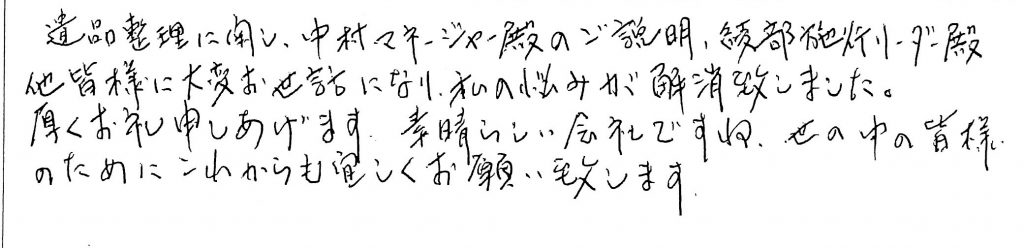 遺品整理に関し、中村マネージャー殿のご説明、綾部施行リーダー殿
他皆様に大変お世話になり、私の悩みが解消致しました。
厚くお礼申しあげます。素晴らしい会社ですね、世の中の皆様
のためにこれからも宜しくお願い致します。